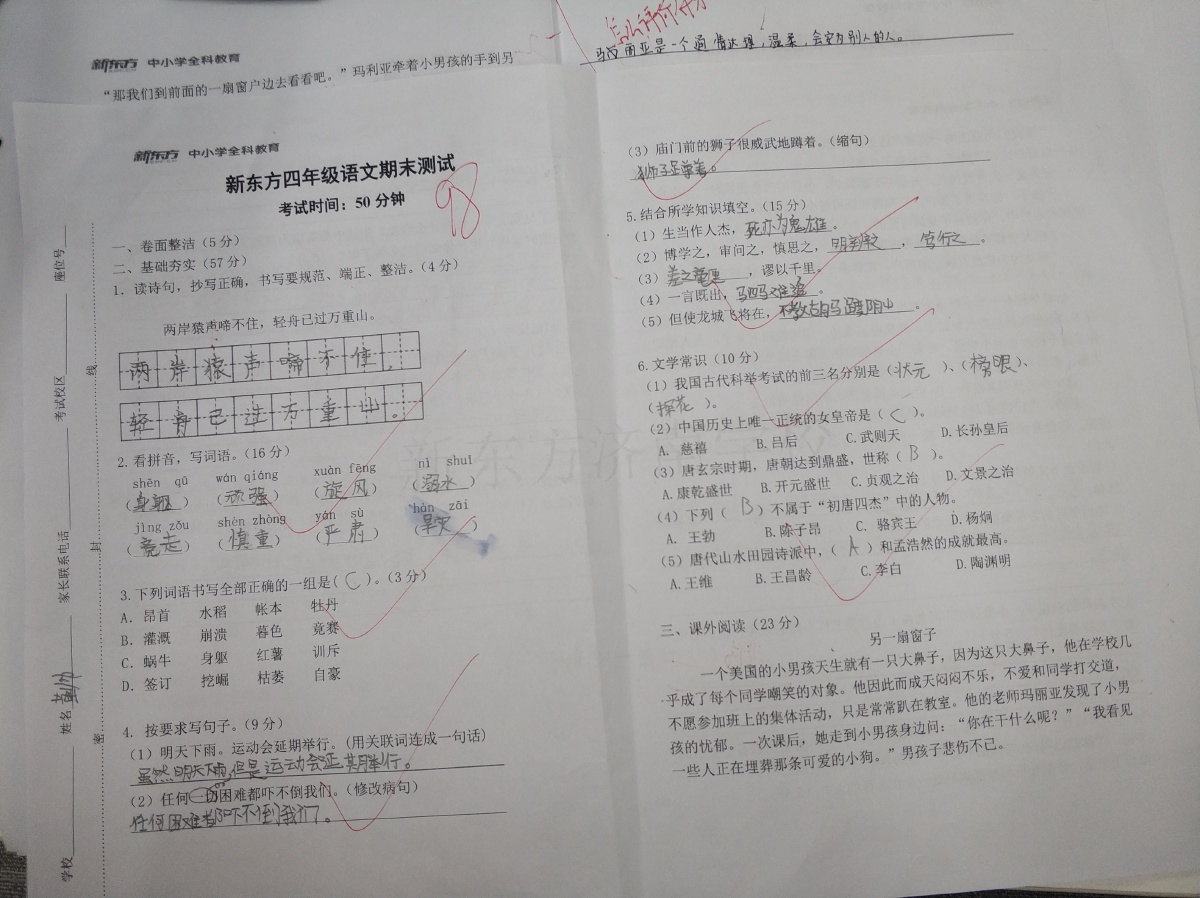 新东方 中小学全科教育
“那我们到前面的一扇窗户边去看看吧。”玛利亚牵着小男孩的手到另
怎么评价
玛丽亚是一个通情达理,温柔,会安为别人的人。
新东方 中小学全科教育
新东方四年级语文期末测试
98
考试时间:50 分钟
一、卷面整洁(5 分)
二、基础夯实(57 分)
1. 读诗句,抄写正确,书写要规范、端正、整洁。(4 分)
两岸猿声啼不住,轻舟已过万重山。
两岸猿声啼不住,
轻舟已过万重山。
2. 看拼音,写词语。(16 分)
shēn qū wán qiáng xuàn fēng nì shuǐ
(身躯) (顽强) (旋风) (溺水)
jìng zǒu shèn zhòng yán sù hàn zāi
(竞走) (慎重) (严肃) (旱灾)
3. 下列词语书写全部正确的一组是( C )。(3 分)
A. 昂首 水稻 帐本 牡丹
B. 灌溉 崩溃 暮色 竟赛
C. 蜗牛 身躯 红薯 训斥
D. 签订 挖崛 枯萎 自豪
4. 按要求写句子。(9 分)
(1)明天下雨。运动会延期举行。(用关联词连成一句话)
虽然明天下雨,但是运动会延期举行。
(2)任何一切困难都吓不倒我们。(修改病句)
任何困难都吓不倒我们。
学校 姓名 家长联系电话 考试校区 座位号
密 封 线
(3)庙门前的狮子很威武地蹲着。(缩句)
狮子蹲着。
5. 结合所学知识填空。(15 分)
(1)生当作人杰,死亦为鬼雄。
(2)博学之,审问之,慎思之,明辩之,笃行之。
(3)差之毫厘,谬以千里。
(4)一言既出,驷马难追。
(5)但使龙城飞将在,不教胡马度阴山。
6. 文学常识(10 分)
(1)我国古代科举考试的前三名分别是(状元)、(榜眼)、
(探花)。
(2)中国历史上唯一正统的女皇帝是( C )。
A. 慈禧 B. 吕后 C. 武则天 D. 长孙皇后
(3)唐玄宗时期,唐朝达到鼎盛,世称( B )。
A. 康乾盛世 B. 开元盛世 C. 贞观之治 D. 文景之治
(4)下列( B )不属于“初唐四杰”中的人物。
A. 王勃 B. 陈子昂 C. 骆宾王 D. 杨炯
(5)唐代山水田园诗派中,( A )和孟浩然的成就最高。
A. 王维 B. 王昌龄 C. 李白 D. 陶渊明
三、课外阅读(23 分)
另一扇窗子
一个美国的小男孩天生就有一只大鼻子,因为这只大鼻子,他在学校几
乎成了每个同学嘲笑的对象。他因此而成天闷闷不乐,不爱和同学打交道,
不愿参加班上的集体活动,只是常常趴在教室。他的老师玛丽亚发现了小男
孩的忧郁。一次课后,她走到小男孩身边问:“你在干什么呢?”“我看见
一些人正在埋葬那条可爱的小狗。”男孩子悲伤不已。